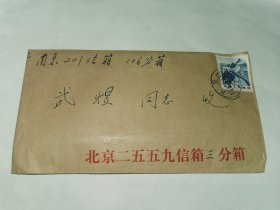 南京201信箱 106分箱
武煜 同志 收
北京二五五九信箱三分箱